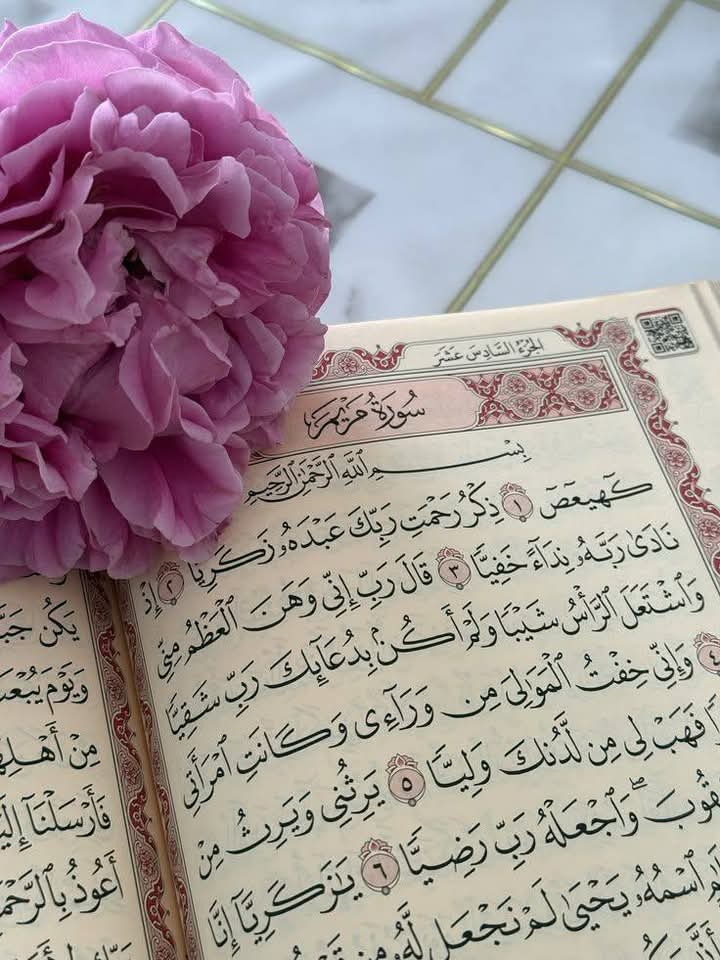 الجُزْءُ السَّادِسَ عَشَرَ
سُورَةُ مَرْيَمَ
بِسْمِ ٱللَّهِ ٱلرَّحْمَٰنِ ٱلرَّحِيمِ
كٓهيعٓصٓ ١ ذِكْرُ رَحْمَتِ رَبِّكَ عَبْدَهُۥ زَكَرِيَّآ ٢ إِذْ
نَادَىٰ رَبَّهُۥ نِدَآءً خَفِيًّا ٣ قَالَ رَبِّ إِنِّي وَهَنَ ٱلْعَظْمُ مِنِّي
وَٱشْتَعَلَ ٱلرَّأْسُ شَيْبًا وَلَمْ أَكُنۢ بِدُعَآئِكَ رَبِّ شَقِيًّا
٤ وَإِنِّي خِفْتُ ٱلْمَوَٰلِيَ مِن وَرَآءِي وَكَانَتِ ٱمْرَأَتِي
فَهَبْ لِي مِن لَّدُنكَ وَلِيًّا ٥ يَرِثُنِي وَيَرِثُ مِنْ
وَٱجْعَلْهُ رَبِّ رَضِيًّا ٦ يَٰزَكَرِيَّآ إِنَّا
ٱسْمُهُۥ يَحْيَىٰ لَمْ نَجْعَل لَّهُۥ مِن
يَكُن
وَيَوْمَ
مِنْ
فَأَرْسَلْنَآ
أَعُوذُ